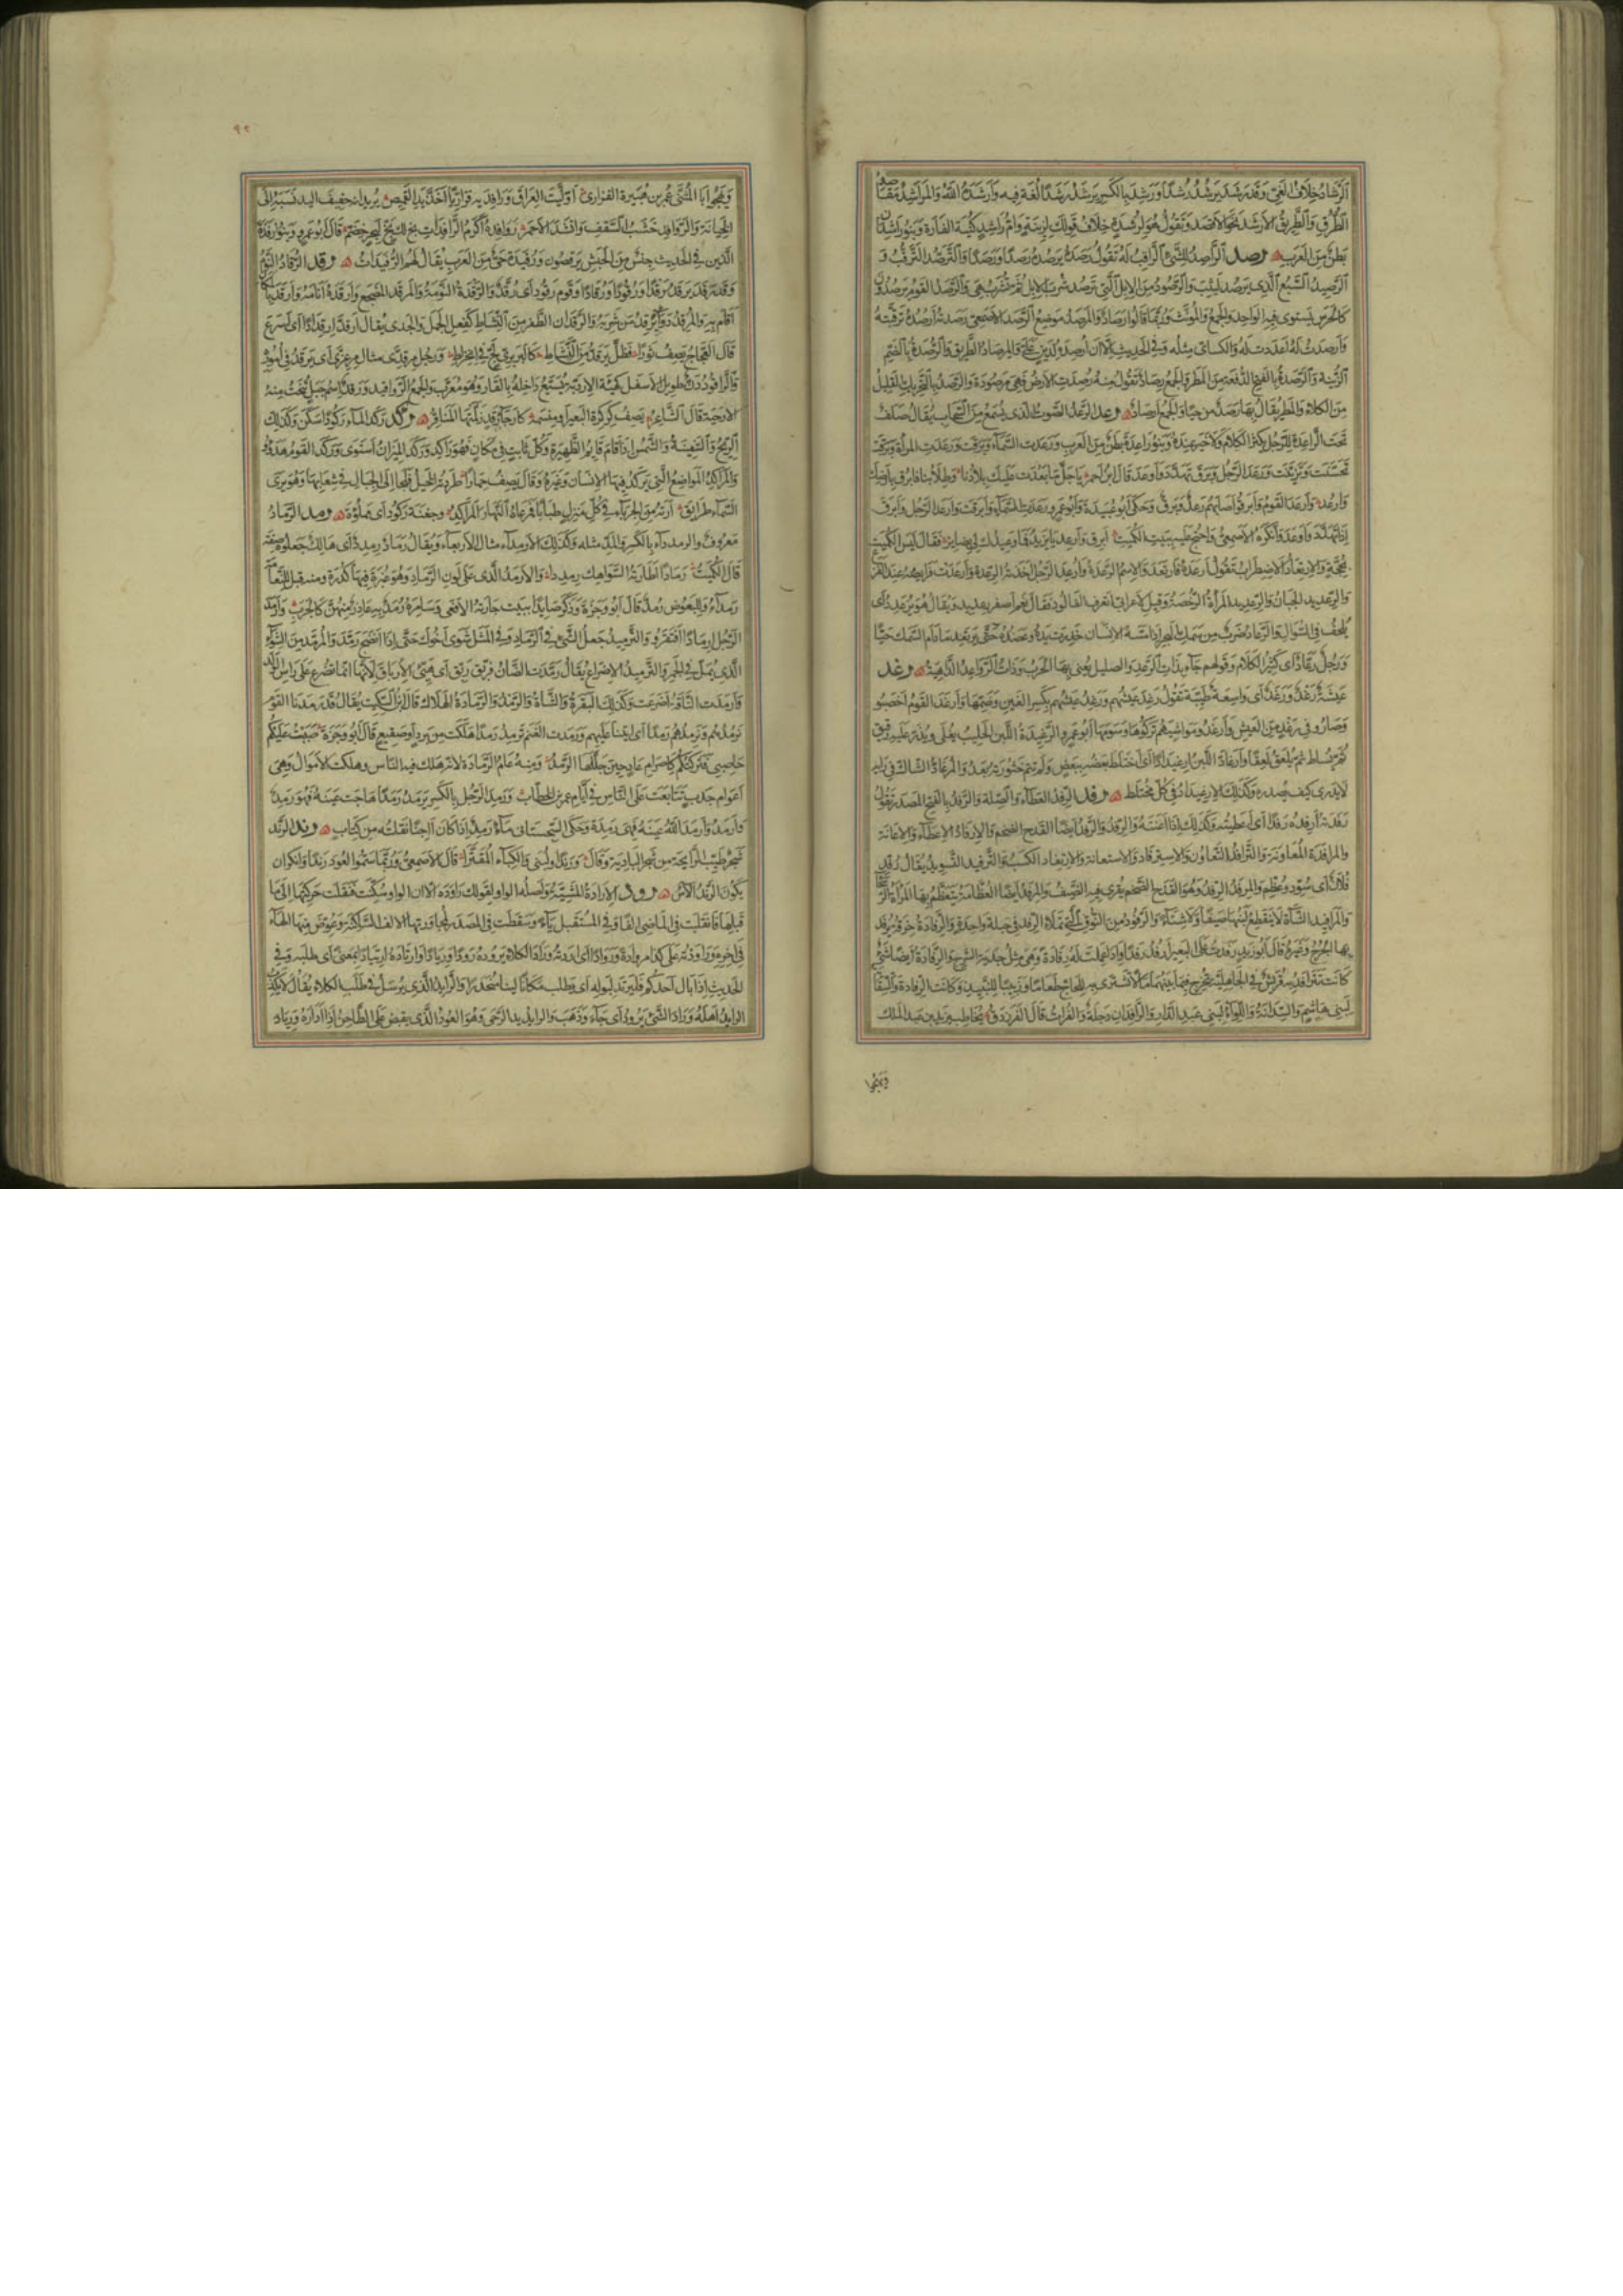 الرشاد خلاف الغي وقد رشد يرشد رشدا ورشد بالكسر يرشد رشدا لغة فيه وارشده الله والمراشد مقاصد
الطرق والطريق الارشد نحو الاقصد وتقول هو لرشدة خلاف قولك لزنية وام راشد كنية الفارة وبنو راشدان
بطن من العرب رصد الراصد للشئ الراقب له تقول رصده يرصده رصدا ورصدا والترصد الترقب و
الرصيد السبع الذي يرصد ليثب والرصود من الابل التي ترصد شرب الابل ثم تشرب هي والرصد القوم يرصدون
كالحرس يستوى فيه الواحد والجمع والمونث وربما قالوا ارصاد والمرصد موضع الرصد الاصمعى رصدته ارصده ترقبته
وارصدت له اعددت له والكسائى مثله وفي الحديث الا ان ارصده لدين على والمرصاد الطريق والرصدة بالضم
الزبية والرصدة بالفتح الدفعة من المطر والجمع رصاد تقول منه رصدت الارض فهى مرصودة والرصد بالتحريك القليل
من الكلاء والمطر يقال بها رصد من حيا والجمع ارصاد رعد الرعد الصوت الذى يسمع من السحاب يقال صلف
تحت الراعدة للرجل يكثر الكلام ولا خير عنده وبنو راعدة بطن من العرب ورعدت السماء وبرقت ورعدت المراة وبرقت
تحسنت وتزينت ورعد الرجل وبرق تهدد واوعد قال ابن احمر يا جل ما بعدت عليك بلادنا وطلابنا فابرق بارضك
وارعد وارعد القوم وابرقوا اصابهم رعد وبرق وحكى ابو عبيدة وابو عمرو رعدت السماء وابرقت وارعد الرجل وابرق
اذا تهدد واوعد وانكره الاصمعى واحتج عليه ببيت الكميت ابرق وارعد يا يزيد فما وعيدك لى بضاير فقال ليس الكميت
بحجة والارتعاد الاضطراب تقول ارعده فارتعد والاسم الرعدة وارعد الرجل اخذته الرعدة وارعدت فرايصه عند الفزع
والرعديد الجبان والرعديد المراة الرخصة وقيل لاعرابى اتعرف الفالوذ فقال نعم اصفر رعديد ويقال هو يرعد اى
يلحف فى السوال والرعاد ضرب من سمك البحر اذا مسه الانسان خدرت يده وعضده حتى يرتعد ما دام السمك حيا
ورجل رعاد اى كثير الكلام وقولهم جاء بذات الرعد والصليل يعنى بها الحرب وذات الرواعد الداهية رغد
عيشة رغد ورغد اى واسعة طيبة تقول رغد عيشهم ورغد عيشهم بكسر الغين وضمها وارغد القوم اخصبوا
وصاروا فى رغد من العيش وارغدوا مواشيهم تركوها وسومها ابو عمرو الرغيدة اللبن الحليب يغلى ويذر عليه دقيق
ثم يساط ثم يلعق لعقا وارغاد اللبن ارغيدادا اى اختلط بعضه ببعض ولم تتم خثورته بعد والمرغاد الشاك فى رايه
لا يدرى كيف يصدره وكذلك الارغيداد فى كل مختلط رفد الرفد العطاء والصلة والرفد بالفتح المصدر تقول
رفدته ارفده رفدا اى اعطيته وكذلك اذا اعنته والرفد والرفد ايضا القدح الضخم والارفاد الاعطاء والاعانة
والمرافدة المعاونة والترافد التعاون والاسترفاد الاستعانة والارتفاد الكسب والترفيد التسويد يقال رفد
فلان اى سود وعظم والمرفد الرفد وهو القدح الضخم يقرى فيه الضيف والمرفد ايضا العظامة تتعظم بها المراة الرسحاء
والمرافيد الشاة لا ينقطع لبنها صيفا ولا شتاء والرفود من النوق التى تملاء الرفد فى حلبة واحدة والرفادة خرقة يرفد
بها الجرح وغيره قال ابو زيد رفدت على البعير ارفد رفدا اذا عملت له رفادة وهى مثل جدية السرج والرفادة ايضا شئ
كانت تترافد به قريش فى الجاهلية تخرج فيما بينها مالا تشترى به للحاج طعاما وزبيبا للنبيذ وكانت الرفادة والسقاية
لبنى هاشم والسدانة واللواء لبنى عبد الدار والرافدان دجلة والفرات قال الفرزدق يخاطب يزيد بن عبد الملك
ويهجوا
٩٢
ويهجوا ابا المثنى عمر بن هبيرة الفزارى اوليت العراق ورافديه فزاريا احذ يد القميص يريد انه خفيف اليد نسبه الى
الخيانة والروافد خشب السقف وانشد الاحمر روافده اكرم الرافدات بخ لك بخ لبحر خضم قال ابو عمرو وبنو ارفدة
الذين فى الحديث جنس من الحبش يرقصون ورفيدة حى من العرب يقال لهم الرفيدات رقد الرقاد النوم
وقد رقد يرقد رقدا ورقودا ورقادا وقوم رقود اى رقد والرقدة النومة والمرقد المضجع وارقده انامه وارقد بالمكان
اقام به والمرقد دواء يرقد من شربه والرقدان الطفر من النشاط كفعل الحمل والجدى يقال ارقد ارقدادا اى اسرع
قال العجاج يصف ثورا فظل يرقد من النشاط كالبربرى لج فى انخراط ورجل مرقدى مثال مرعزى اى يرقد فى اموره
والراقود دن طويل الاسفل كهيئة الاردبة يسيع داخله بالقار وهو معرب والجمع الرواقيد ورقد اسم جبل تنحت منه
الارحية قال الشاعر يصف كركرة البعير او منسمه كارحاء رقد زلمتها المناقر ركد ركد الماء ركودا سكن وكذلك
الريح والسفينة والشمس اذا قام قايم الظهيرة وكل ثابت فى مكان فهو راكد وركد الميزان استوى وركد القوم هدؤا
والمراكد المواضع التى يركد فيها الانسان وغيره وقال يصف حمارا طردته الخيل فلجا الى الجبال فى شعابها وهو يرى
السماء طرايق ارته من الجرباء فى كل منزل طبابا فمرعاه النهار المراكد وجفنة ركود اى مملؤة رمد الرماد
معروف والرمدداء بالكسر والمد مثله وكذلك الارمداء مثال الاربعاء ويقال رماد رمدد اى هالك جعلوه صفة
قال الكميت رمادا اطارته السواهك رمددا والارمد الذى على لون الرماد وهو غبرة فيها كدرة ومنه قيل للنعامة
رمداء وللبعوض رمد قال ابو وجزة وذكر صايدا يبيت جارته الافعى وسامره رمد به عاذر منهن كالجرب وارمد
الرجل ارمادا افتقر والترميد جعل الشئ فى الرماد وفى المثل شوى اخوك حتى اذا انضج رمد والمرمد من الشواء
الذى يمل فى الجمر والترميد الاضراع يقال رمدت الضان فربق ربق اى هيئ الارباق لانها انما تضرع على راس الولد
وارمدت الناقة اضرعت وكذلك البقرة والشاة والرمد والرمادة الهلاك قال ابن السكيت يقال قد رمدنا القوم
نرمدهم ونرمدهم رمدا اى اتينا عليهم ورمدت الغنم ترمد رمدا هلكت من برد او صقيع قال ابو وجزة صببت عليكم
حاصبى فتركتكم كاصرام عاد حين جللها الرمد ومنه عام الرمادة لانه هلك فيه الناس وهلكت الاموال وهى
اعوام جدب تتابعت على الناس فى ايام عمر بن الخطاب ورمد الرجل بالكسر يرمد رمدا هاجت عينه فهو رمد
وارمد وارمد الله عينه فهى رمدة وحكى السجستانى ماء رمد اذا كان اجنا نقلته من كتاب رند الرند
شجر طيب الرايحة من شجر البادية وقال ورندا ولبنى والكباء المقترا قال الاصمعى وربما سموا العود رندا وانكر ان
يكون الرند الاس رود الارادة المشية واصله الواو لقولك راوده الا ان الواو سكنت فنقلت حركتها الى ما
قبلها فانقلبت فى الماضى الفا وفى المستقبل ياء وسقطت فى المصدر لمجاورتها الالف الساكنة وعوض منها الهاء
فى اخره وراودته على كذا مراودة وروادا اى اردته وراد الكلاء يروده رودا وريادا وارتاده ارتيادا بمعنى اى طلبه وفى
الحديث اذا بال احدكم فليرتد لبوله اى يطلب مكانا لينا منحدرا والرايد الذى يرسل فى طلب الكلاء يقال لا يكذب
الرايد اهله وراد الشئ يرود اى جاء وذهب والرايد يد الرحى وهو العود الذى يقبض عليه الطاحن اذا اداره ورياد